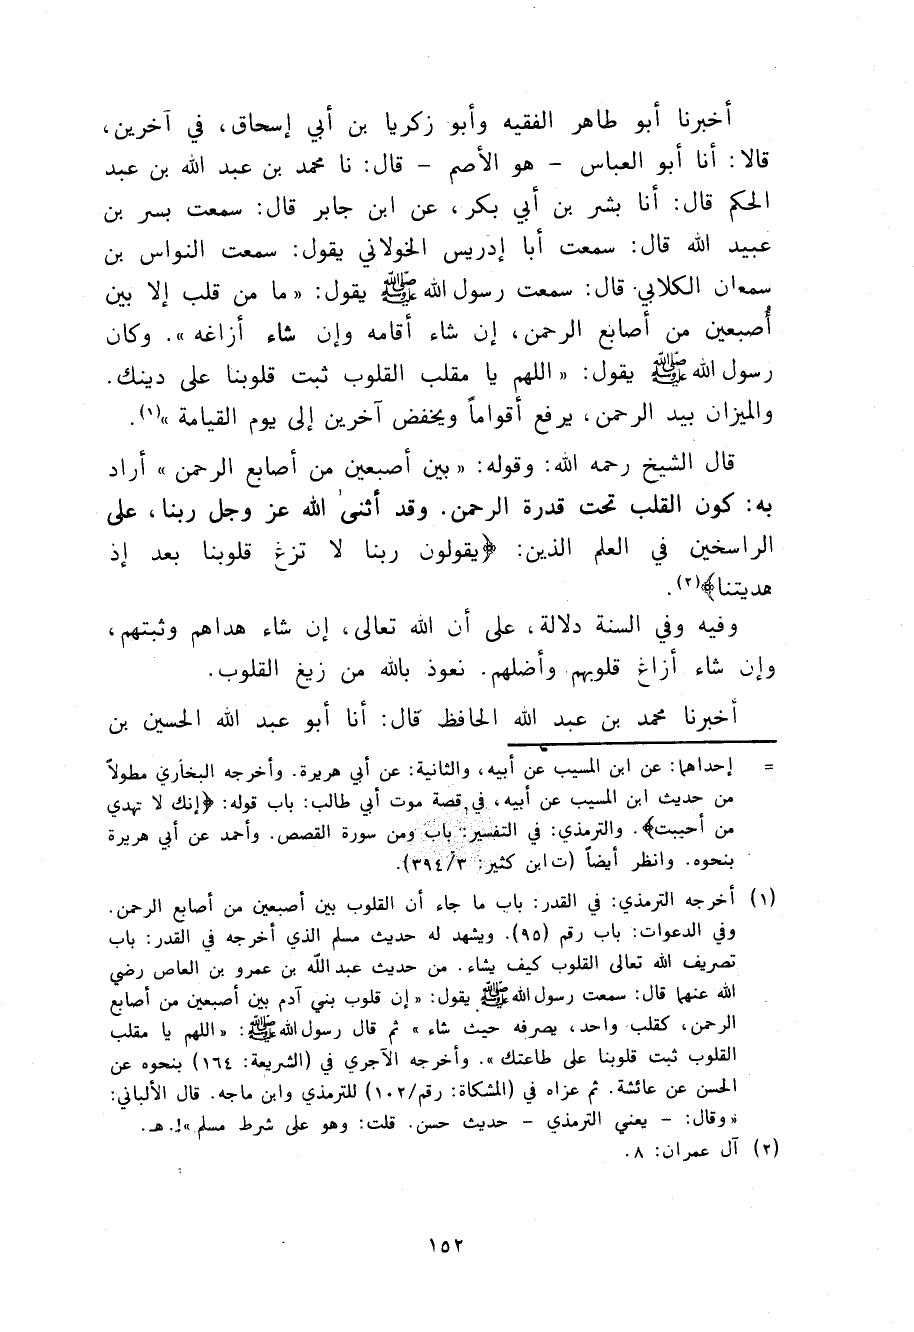 أخبرنا أبو طاهر الفقيه وأبو زكريا بن أبي إسحاق، في آخرين،
قالا: أنا أبو العباس - هو الأصم - قال: نا محمد بن عبد الله بن عبد
الحكم قال: أنا بشر بن أبي بكر، عن ابن جابر قال: سمعت بسر بن
عبيد الله قال: سمعت أبا إدريس الخولاني يقول: سمعت النواس بن
سمعان الكلابي قال: سمعت رسول الله ﷺ يقول: « ما من قلب إلا بين
أُصبعين من أصابع الرحمن، إن شاء أقامه وإن شاء أزاغه ». وكان
رسول الله ﷺ يقول: « اللهم يا مقلب القلوب ثبت قلوبنا على دينك.
والميزان بيد الرحمن، يرفع أقواماً ويخفض آخرين إلى يوم القيامة »(١).
قال الشيخ رحمه الله: وقوله: « بين أصبعين من أصابع الرحمن » أراد
به: كون القلب تحت قدرة الرحمن. وقد أثنى الله عز وجل ربنا، على
الراسخين في العلم الذين: ﴿يقولون ربنا لا تزغ قلوبنا بعد إذ
هديتنا﴾(٢).
وفيه وفي السنة دلالة، على أن الله تعالى، إن شاء هداهم وثبتهم،
وإن شاء أزاغ قلوبهم وأضلهم. نعوذ بالله من زيغ القلوب.
أخبرنا محمد بن عبد الله الحافظ قال: أنا أبو عبد الله الحسين بن
= إحداهما: عن ابن المسيب عن أبيه، والثانية: عن أبي هريرة. وأخرجه البخاري مطولاً
من حديث ابن المسيب عن أبيه، في قصة موت أبي طالب: باب قوله: ﴿إنك لا تهدي
من أحببت﴾. والترمذي: في التفسير: باب ومن سورة القصص. وأحمد عن أبي هريرة
بنحوه. وانظر أيضاً (ت ابن كثير: ٣٩٤/٣).
(١) أخرجه الترمذي: في القدر: باب ما جاء أن القلوب بين أصبعين من أصابع الرحمن.
وفي الدعوات: باب رقم (٩٥). ويشهد له حديث مسلم الذي أخرجه في القدر: باب
تصريف الله تعالى القلوب كيف يشاء. من حديث عبد اللّه بن عمرو بن العاص رضي
الله عنهما قال: سمعت رسول الله ﷺ يقول: « إن قلوب بني آدم بين أصبعين من أصابع
الرحمن، كقلب واحد، يصرفه حيث شاء » ثم قال رسول الله ﷺ: « اللهم يا مقلب
القلوب ثبت قلوبنا على طاعتك ». وأخرجه الآجري في (الشريعة: ١٦٤) بنحوه عن
الحسن عن عائشة. ثم عزاه في (المشكاة: رقم/١٠٢) للترمذي وابن ماجه. قال الألباني:
« وقال: - يعني الترمذي - حديث حسن. قلت: وهو على شرط مسلم »ا. هـ.
(٢) آل عمران: ٨.
١٥٢